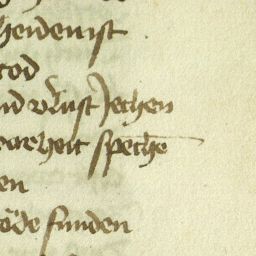 heidenist
tod
nd vlust Jechen
warheit speche
en
öde funden